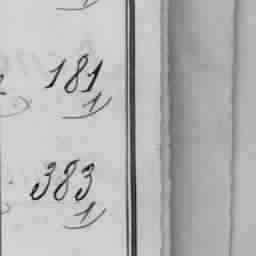 181
1
383
1